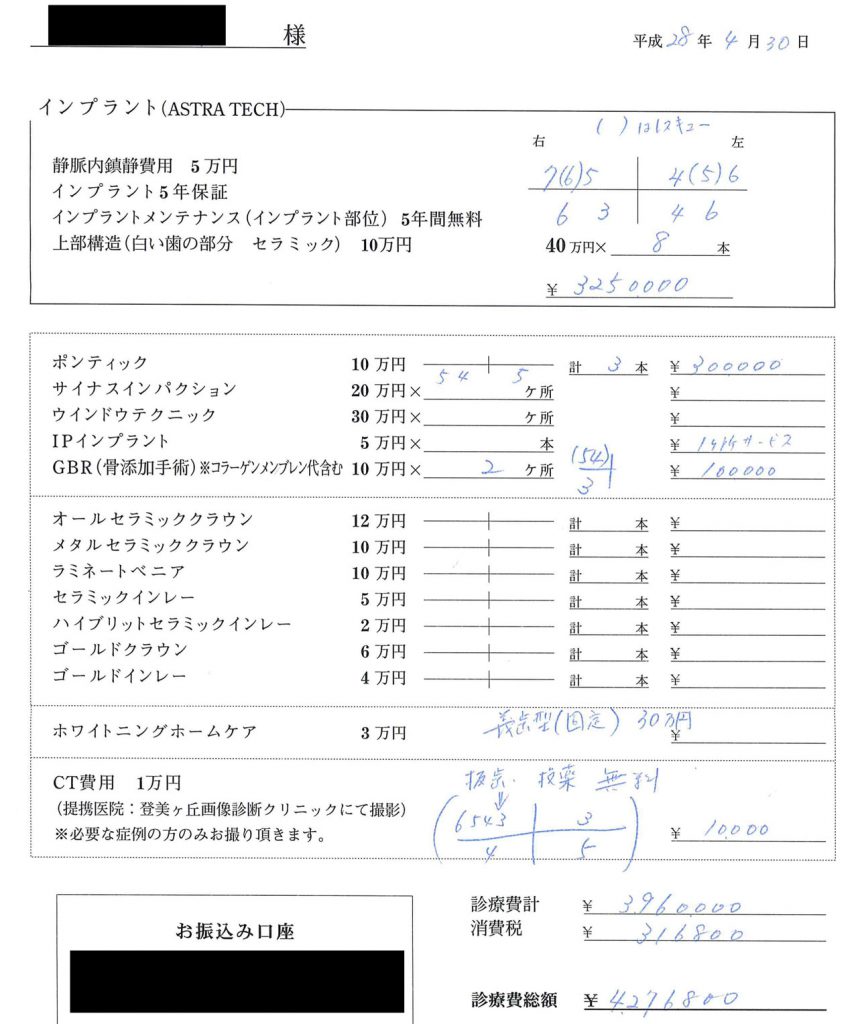 様
平成28年4月30日
インプラント(ASTRA TECH)
( )はレスキュー
右 左
静脈内鎮静費用 5万円
7(6)5 4(5)6
インプラント5年保証
インプラントメンテナンス(インプラント部位) 5年間無料
6 3 4 6
上部構造(白い歯の部分 セラミック) 10万円
40万円× 8 本
¥ 3250000
ポンティック 10万円 54 5 計 3 本 ¥ 300000
サイナスインパクション 20万円× ケ所 ¥
ウインドウテクニック 30万円× ケ所 ¥
IPインプラント 5万円× 本 ¥ サービス
GBR(骨添加手術)※コラーゲンメンブレン代含む 10万円× 2 ケ所 (54) 3 ¥ 100000
オールセラミッククラウン 12万円 計 本 ¥
メタルセラミッククラウン 10万円 計 本 ¥
ラミネートベニア 10万円 計 本 ¥
セラミックインレー 5万円 計 本 ¥
ハイブリットセラミックインレー 2万円 計 本 ¥
ゴールドクラウン 6万円 計 本 ¥
ゴールドインレー 4万円 計 本 ¥
ホワイトニングホームケア 3万円 義歯型(固定) 30万円 ¥
CT費用 1万円
抜歯・投薬 無料
(提携医院:登美ヶ丘画像診断クリニックにて撮影)
(6543 3
※必要な症例の方のみお撮り頂きます。
4 5)
¥ 10,000
診療費計 ¥ 3,960,000
お振込み口座
消費税 ¥ 316800
診療費総額 ¥ 4,276800